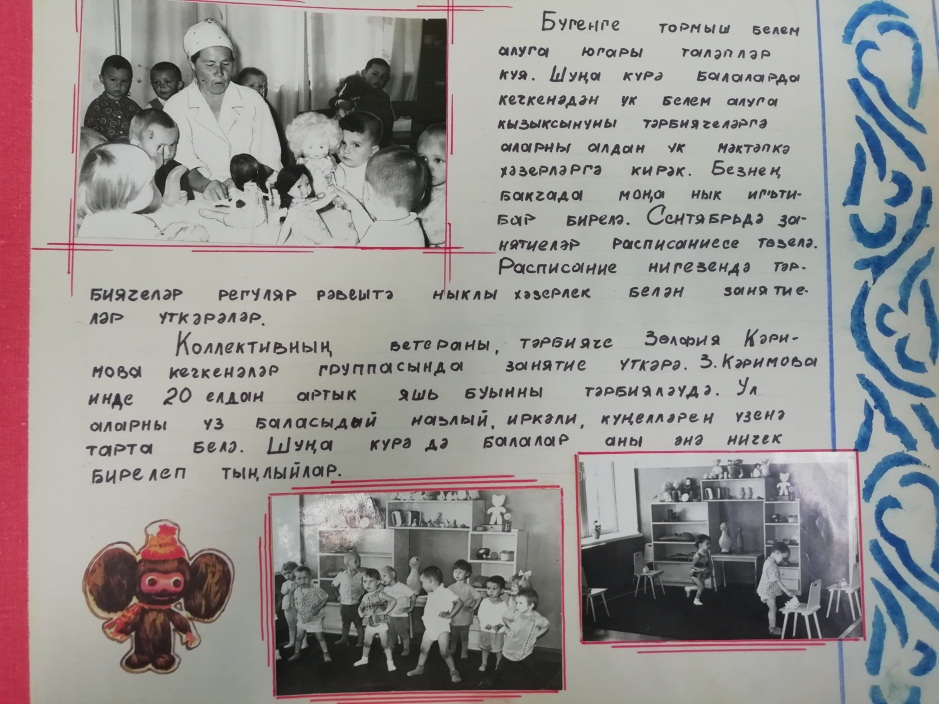 Бүгенге тормыш белем
алуга югары таләпләр
куя. Шуңа күрә балаларда
кечкенәдән үк белем алуга
кызыксынуны тәрбиячеләргә
аларны алдан ук мәктәпкә
хәзерләргә кирәк. Безнең
бакчада моңа нык игъти-
бар бирелә. Сентябрьдә за-
нятиеләр расписаниесе төзелә.
Расписание нигезендә тәр-
биячеләр регуляр рәвештә ныклы хәзерлек белән занятие-
ләр үткәрәләр.
Коллективның ветераны, тәрбияче Зөлфия Кәри-
мова кечкенәләр группасында занятие үткәрә. З. Кәримова
инде 20 елдан артык яшь буынны тәрбияләүдә. Ул
аларны үз баласыдай назлый, иркәли, күңелләрен үзенә
тарта белә. Шуңа күрә дә балалар аны әнә ничек
бирелеп тыңлыйлар.